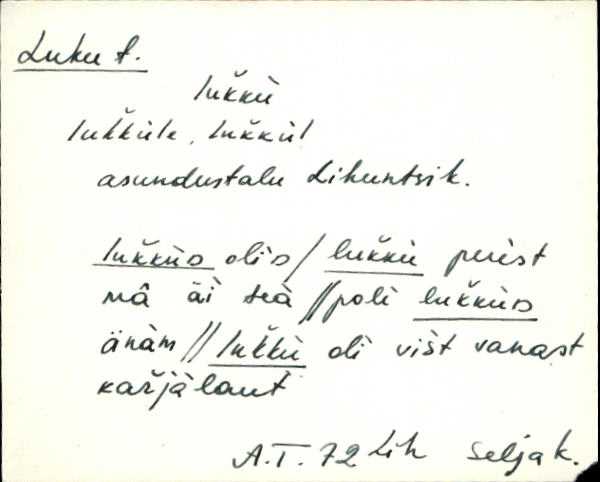 Luku t.
lukkù
lukkùle, lukkùl
asundustalu Lihuntsik.
lukkùs olis / lukkù perèst
mâ äi teà // poli lukkùs
änàm // lukkù oli višt vanast
kařjàlaut
A.T. 72 Lih Selja k.